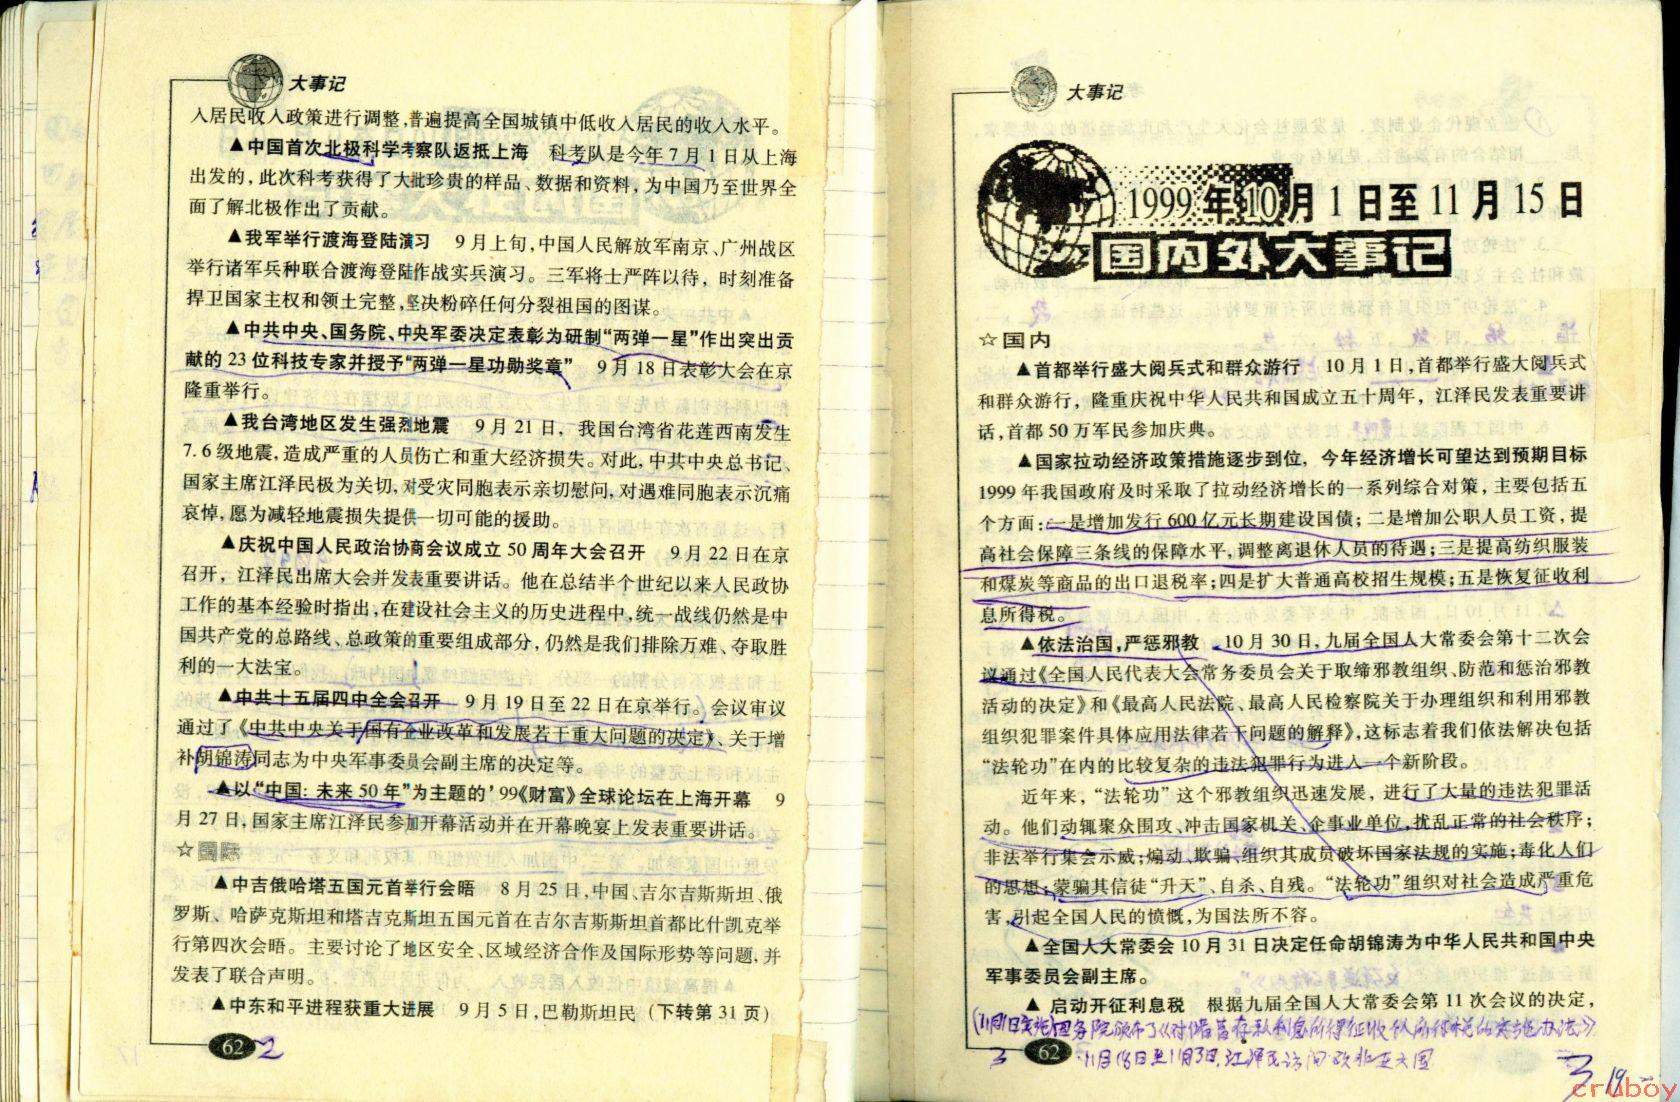 大事记
入居民收入政策进行调整,普遍提高全国城镇中低收入居民的收入水平。
▲中国首次北极科学考察队返抵上海 科考队是今年7月1日从上海
出发的,此次科考获得了大批珍贵的样品、数据和资料,为中国乃至世界全
面了解北极作出了贡献。
▲我军举行渡海登陆演习 9月上旬,中国人民解放军南京、广州战区
举行诸军兵种联合渡海登陆作战实兵演习。三军将士严阵以待,时刻准备
捍卫国家主权和领土完整,坚决粉碎任何分裂祖国的图谋。
▲中共中央、国务院、中央军委决定表彰为研制“两弹一星”作出突出贡
献的23位科技专家并授予“两弹一星功勋奖章” 9月18日表彰大会在京
隆重举行。
▲我台湾地区发生强烈地震 9月21日,我国台湾省花莲西南发生
7.6级地震,造成严重的人员伤亡和重大经济损失。对此,中共中央总书记、
国家主席江泽民极为关切,对受灾同胞表示亲切慰问,对遇难同胞表示沉痛
哀悼,愿为减轻地震损失提供一切可能的援助。
▲庆祝中国人民政治协商会议成立50周年大会召开 9月22日在京
召开,江泽民出席大会并发表重要讲话。他在总结半个世纪以来人民政协
工作的基本经验时指出,在建设社会主义的历史进程中,统一战线仍然是中
国共产党的总路线、总政策的重要组成部分,仍然是我们排除万难、夺取胜
利的一大法宝。
▲中共十五届四中全会召开 9月19日至22日在京举行。会议审议
通过了《中共中央关于国有企业改革和发展若干重大问题的决定》、关于增
补胡锦涛同志为中央军事委员会副主席的决定等。
▲以“中国:未来50年”为主题的’99《财富》全球论坛在上海开幕 9
月27日,国家主席江泽民参加开幕活动并在开幕晚宴上发表重要讲话。
☆国际
▲中吉俄哈塔五国元首举行会晤 8月25日,中国、吉尔吉斯斯坦、俄
罗斯、哈萨克斯坦和塔吉克斯坦五国元首在吉尔吉斯斯坦首都比什凯克举
行第四次会晤。主要讨论了地区安全、区域经济合作及国际形势等问题,并
发表了联合声明。
▲中东和平进程获重大进展 9月5日,巴勒斯坦民(下转第31页)
62 2
大事记
1999年10月1日至11月15日
国内外大事记
☆国内
▲首都举行盛大阅兵式和群众游行 10月1日,首都举行盛大阅兵式
和群众游行,隆重庆祝中华人民共和国成立五十周年,江泽民发表重要讲
话,首都50万军民参加庆典。
▲国家拉动经济政策措施逐步到位,今年经济增长可望达到预期目标
1999年我国政府及时采取了拉动经济增长的一系列综合对策,主要包括五
个方面:一是增加发行600亿元长期建设国债;二是增加公职人员工资,提
高社会保障三条线的保障水平,调整离退休人员的待遇;三是提高纺织服装
和煤炭等商品的出口退税率;四是扩大普通高校招生规模;五是恢复征收利
息所得税。
▲依法治国,严惩邪教 10月30日,九届全国人大常委会第十二次会
议通过《全国人民代表大会常务委员会关于取缔邪教组织、防范和惩治邪教
活动的决定》和《最高人民法院、最高人民检察院关于办理组织和利用邪教
组织犯罪案件具体应用法律若干问题的解释》,这标志着我们依法解决包括
“法轮功”在内的比较复杂的违法犯罪行为进入一个新阶段。
近年来,“法轮功”这个邪教组织迅速发展,进行了大量的违法犯罪活
动。他们动辄聚众围攻、冲击国家机关、企事业单位,扰乱正常的社会秩序;
非法举行集会示威;煽动、欺骗、组织其成员破坏国家法规的实施;毒化人们
的思想;蒙骗其信徒“升天”、自杀、自残。“法轮功”组织对社会造成严重危
害,引起全国人民的愤慨,为国法所不容。
▲全国人大常委会10月31日决定任命胡锦涛为中华人民共和国中央
军事委员会副主席。
▲ 启动开征利息税 根据九届全国人大常委会第11次会议的决定,
(11月1日实施)国务院颁布了《对储蓄存款利息所得征收个人所得税的实施办法》
3 62 10月18日至11月3日,江泽民访问欧非亚六国
3 19
cruboy